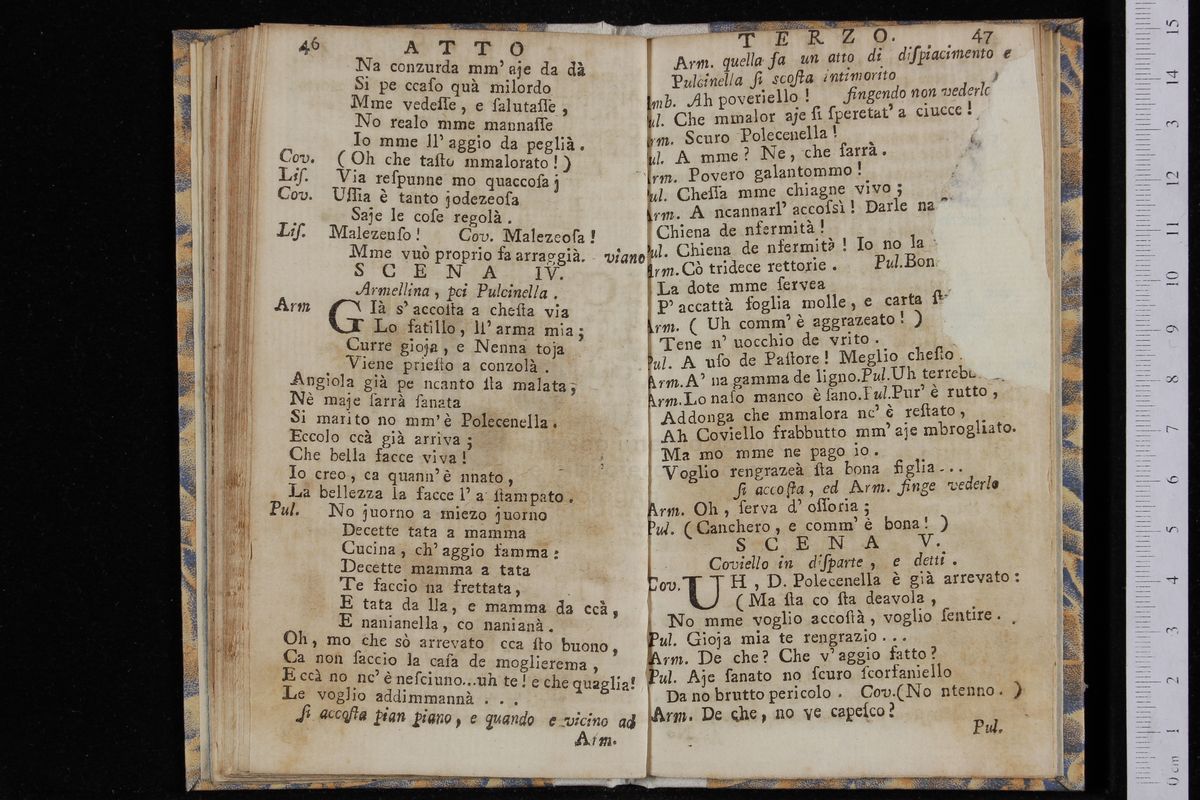 46 ATTO
Na conzurda mm' aje da dà
Si pe ccaſo quà milordo
Mme vedeſſe, e ſalutaſſe,
No realo mme mannaſſe
Io mme ll' aggio da peglià.
Cov. (Oh che taſto mmalorato!)
Liſ. Via reſpunne mo quaccoſa;
Cov. Uſſia è tanto jodezeoſa
Saje le coſe regolà.
Liſ. Malezeuſo! Cov. Malezeoſa!
Mme vuò proprio fa arraggià. viano
SCENA IV.
Armellina, poi Pulcinella.
Arm GIà s' accoſta a cheſta via
Lo fatillo, ll' arma mia;
Curre gioja, e Nenna toja
Viene prieſto a conzolà.
Angiola già pe ncanto ſta malata,
Nè maje ſarrà ſanata
Si marito no mm' è Polecenella.
Eccolo ccà già arriva;
Che bella facce viva!
Io creo, ca quann' è nnato,
La bellezza la facce l' a ſtampato.
Pul. No juorno a miezo juorno
Decette tata a mamma
Cucina, ch' aggio famma:
Decette mamma a tata
Te faccio na frettata,
E tata da lla, e mamma da ccà,
E nanianella, co nanianà.
Oh, mo che sò arrevato cca ſto buono,
Ca non faccio la caſa de moglierema,
E ccà no nc' è neſciuno...uh te! e che quaglia!
Le voglio addimmannà ...
ſi accoſta pian piano, e quando e vicino ad
Arm.
TERZO. 47
Arm. quella fa un atto di diſpiacimento e
Pulcinella ſi ſcoſta intimorito
mb. Ah poveriello! fingendo non vederlo
ul. Che mmalor aje ſi ſperetat' a ciucce!
rm. Scuro Polecenella!
ul. A mme? Ne, che ſarrà.
rm. Povero galantommo!
ul. Cheſſa mme chiagne vivo;
Arm. A ncannarl' accoſsì! Darle na
Chiena de nfermità!
Pul. Chiena de nfermità! Io no la
Arm. Cò tridece rettorie. Pul. Bon
La dote mme ſervea
P' accattà foglia molle, e carta ſt
Arm. (Uh comm' è aggrazeato!)
Tene n' uocchio de vrito.
Pul. A uſo de Paſtore! Meglio cheſto.
Arm. A' na gamma de ligno. Pul. Uh
Arm. Lo naſo manco è ſano. Pul. Pur' è rutto,
Addonga che mmalora nc' è reſtato,
Ah Coviello frabbutto mm' aje mbrogliato.
Ma mo mme ne pago io.
Voglio rengrazeà ſta bona figlia...
ſi accoſta, ed Arm. finge vederlo
Arm. Oh, ſerva d' oſſoria;
Pul. (Canchero, e comm' è bona!)
SCENA V.
Coviello in diſparte, e detti.
Cov. UH, D. Polecenella è già arrevato:
(Ma ſta co ſta deavola,
No mme voglio accoſtà, voglio ſentire.
Pul. Gioja mia te rengrazio...
Arm. De che? Che v' aggio fatto?
Pul. Aje ſanato no ſcuro ſcorfaniello
Da no brutto pericolo. Cov. (No ntenno.)
Arm. De che, no ve capeſco?
Pul.